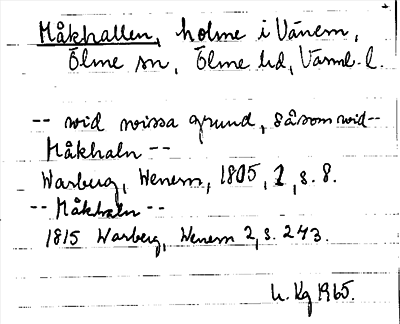 Måkhallen, holme i Vänern,
Ölme sn, Ölme hd, Värml. l.
-- wid wissa grund, såsom wid --
Måkhaln --
Warberg, Wenern, 1805, 1, s. 8.
-- Måkhaln --
1815 Warberg, Wenern 2, s. 243.
h. Kg 1965.